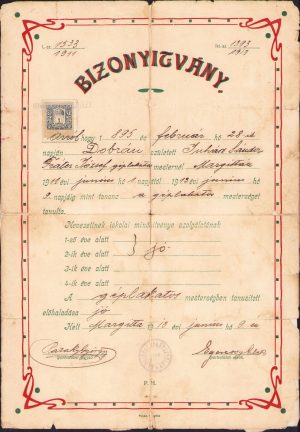 1533
1911
1393
1913
BIZONYITVÁNY.
hogy 1895 év február hó 28 án
napján Dobrán született Juhász Sándor
József géplakatos mesternél Margittán
évi junius hó 1 napjától 1913 évi junius hó
9. napjáig mint tanonc a géplakatos mesterséget
tanulta.
Nevezettnek iskolai minősítvénye szolgálatának
1-ső éve alatt
2-ik éve alatt
jó
3-ik éve alatt
4-ik éve alatt
A géplakatos mesterségben tanusitott
előhaladása jó
Kelt Margitta 1913 évi junius hó 9 én
P. H.